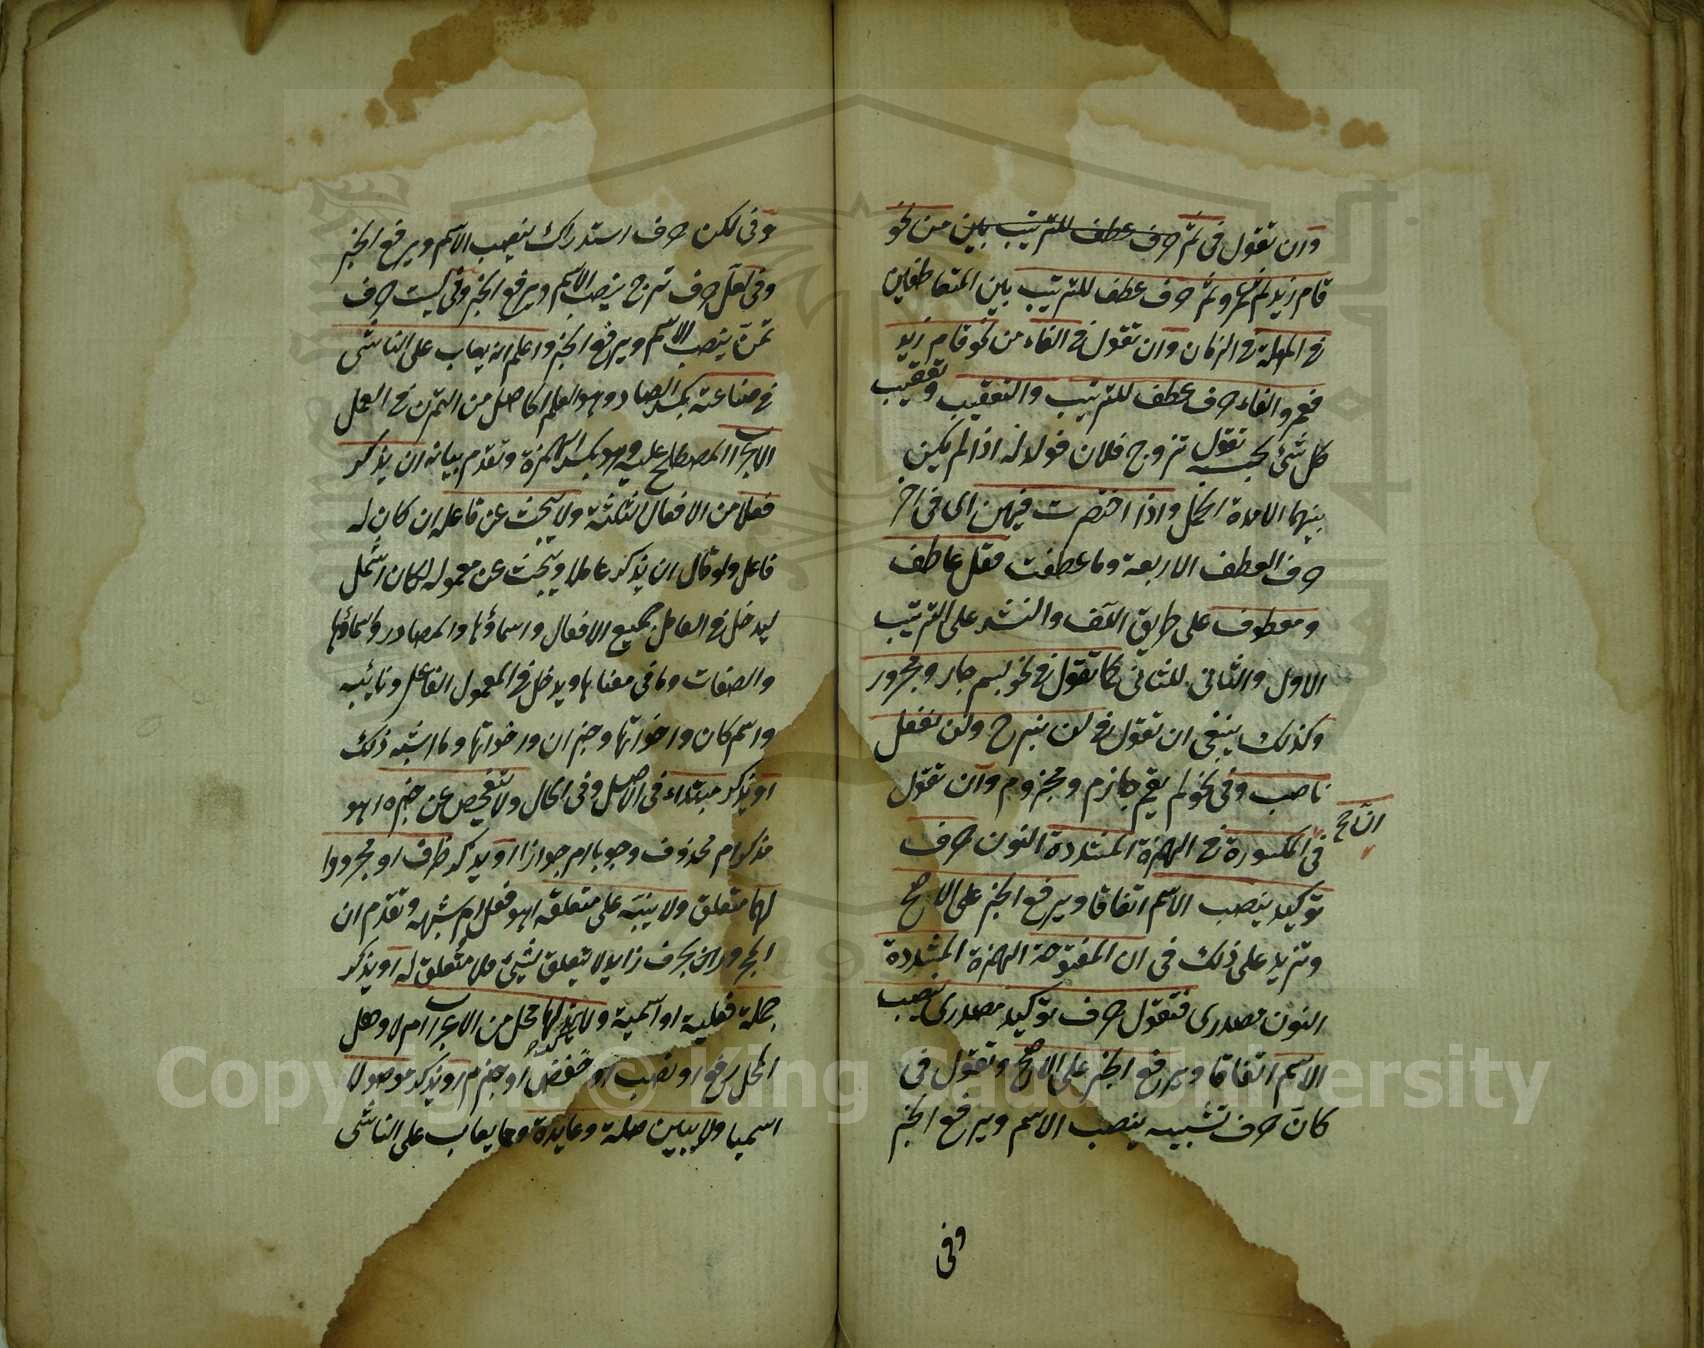 وان تقول في ثم حرف عطف للترتيب بين من نحو
قام زيد ثم عمرو ثم حرف عطف للترتيب بين المتعاطفين
في المهلة في الزمان وان تقول في الفاء من نحو قام زيد
فعمرو الفاء حرف عطف للترتيب والتعقيب وتعقيب
كل شئ بحسبه تقول تزوج فلان فولد له اذا لم يكن
بينهما الا مدة الحمل واذا اختصرت فيهن اى في احر
حرف العطف الاربعة وما عطفت فقل عاطف
ومعطوف على طريق اللف والنشر على الترتيب
الاول والثاني للثاني كما تقول في نحو بسم جار ومجرور
وكذلك ينبغي ان تقول في لن نبرح ولن نفعل
ناصب وفي نحو لم يقم جازم ومجزوم وان تقول
في المكسورة الهمزة المشددة النون حرف
ان
توكيد ينصب الاسم اتفاقا ويرفع الخبر على الاصح
وتزيد على ذلك في ان المفتوحة الهمزة المشددة
النون مصدرى فتقول حرف توكيد مصدرى ينصب
الاسم اتفاقا ويرفع الخبر على الاصح وتقول في
كان حرف تشبيه ينصب الاسم ويرفع الخبر
وفي
وفي لكن حرف استدراك ينصب الاسم ويرفع الخبر
وفي لعل حرف ترج ينصب الاسم ويرفع الخبر وفي ليت حرف
تمن ينصب الاسم ويرفع الخبر واعلم انه يعاب على الناشئ
في صناعته بكسر الصاد وهو العلم الحاصل من التمرن في العمل
الاعراب المصطلح عليه وهو بكسر الهمزة وتقدم بيانه ان يذكر
فعلا من الافعال الثلثة ولا يبحث عن فاعله ان كان له
فاعل ولو قال ان يذكر عاملا ويبحث عن معموله لكان اشمل
ليدخل في العامل جميع الافعال واسماؤها والمصادر واسماؤها
والصفات وما في معناها ويدخل في المعمول الفاعل ونائبه
واسم كان واخواتها وخبر ان واخواتها وما اشبه ذلك
او يذكر مبتداء في الاصل وفي الحال ولا يتفحص عن خبره اهو
مذكور ام محذوف وجوبا ام جوازا او يذكر ظرف او مجرورا
لهما متعلق ولا ينبه على متعلقه اهو فعل ام شبهه وتقدم ان
المجرور بحرف زايد لا يتعلق بشئ فلا متعلق له او يذكر
جملة فعلية او اسمية ولا يذكر الها محل من الاعراب ام لا وهل
المحل رفع او نصب او خفض او جزم او يذكر موصولا
اسميا ولا يبين صلته وعايده ومما يعاب على الناشئ
Copyright © King Saud University